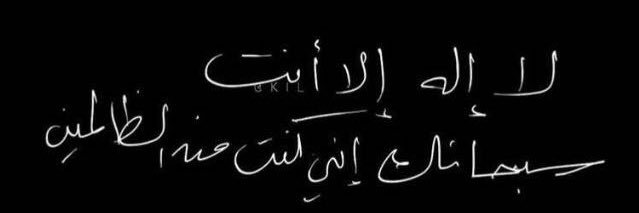 لا إله إلا أنت
سبحانك إني كنت من الظالمين